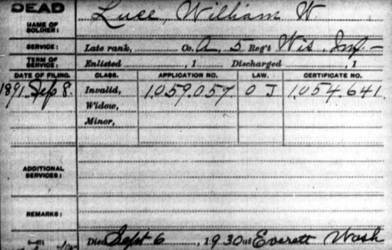 DEAD
NAME OF SOLDIER: Luce, William W
SERVICE: Late rank, Co. A, 5 Reg't Wis. Inf.
TERM OF SERVICE: Enlisted , 1 Discharged , 1
DATE OF FILING. CLASS. APPLICATION NO. LAW. CERTIFICATE NO.
1891 Sep 8. Invalid, 1,059,057 O J 1,054,641.
Widow,
Minor,
ADDITIONAL SERVICES:
REMARKS:
Died Sept 6, 1930 at Everett Wash